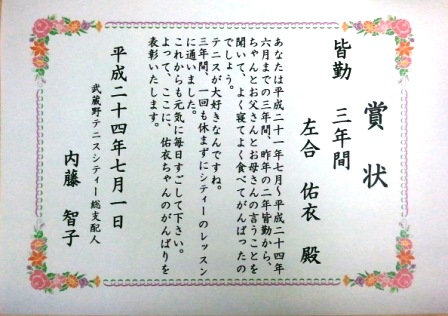 賞状
皆勤 三年間
左合 佑衣 殿
あなたは平成二十一年七月~平成二十四年
六月までの三年間、昨年の二年皆勤から、
ちゃんとお父さんとお母さんの言うことを
聞いて、よく寝てよく食べてがんばったの
でしょう。
テニスが大好きなんですね。
三年間、一回も休まずにシティーのレッスン
に通いました。
これからも元気に毎日すごして下さい。
よって、ここに、佑衣ちゃんのがんばりを
表彰いたします。
平成二十四年七月一日
武蔵野テニスシティー総支配人
内藤 智子